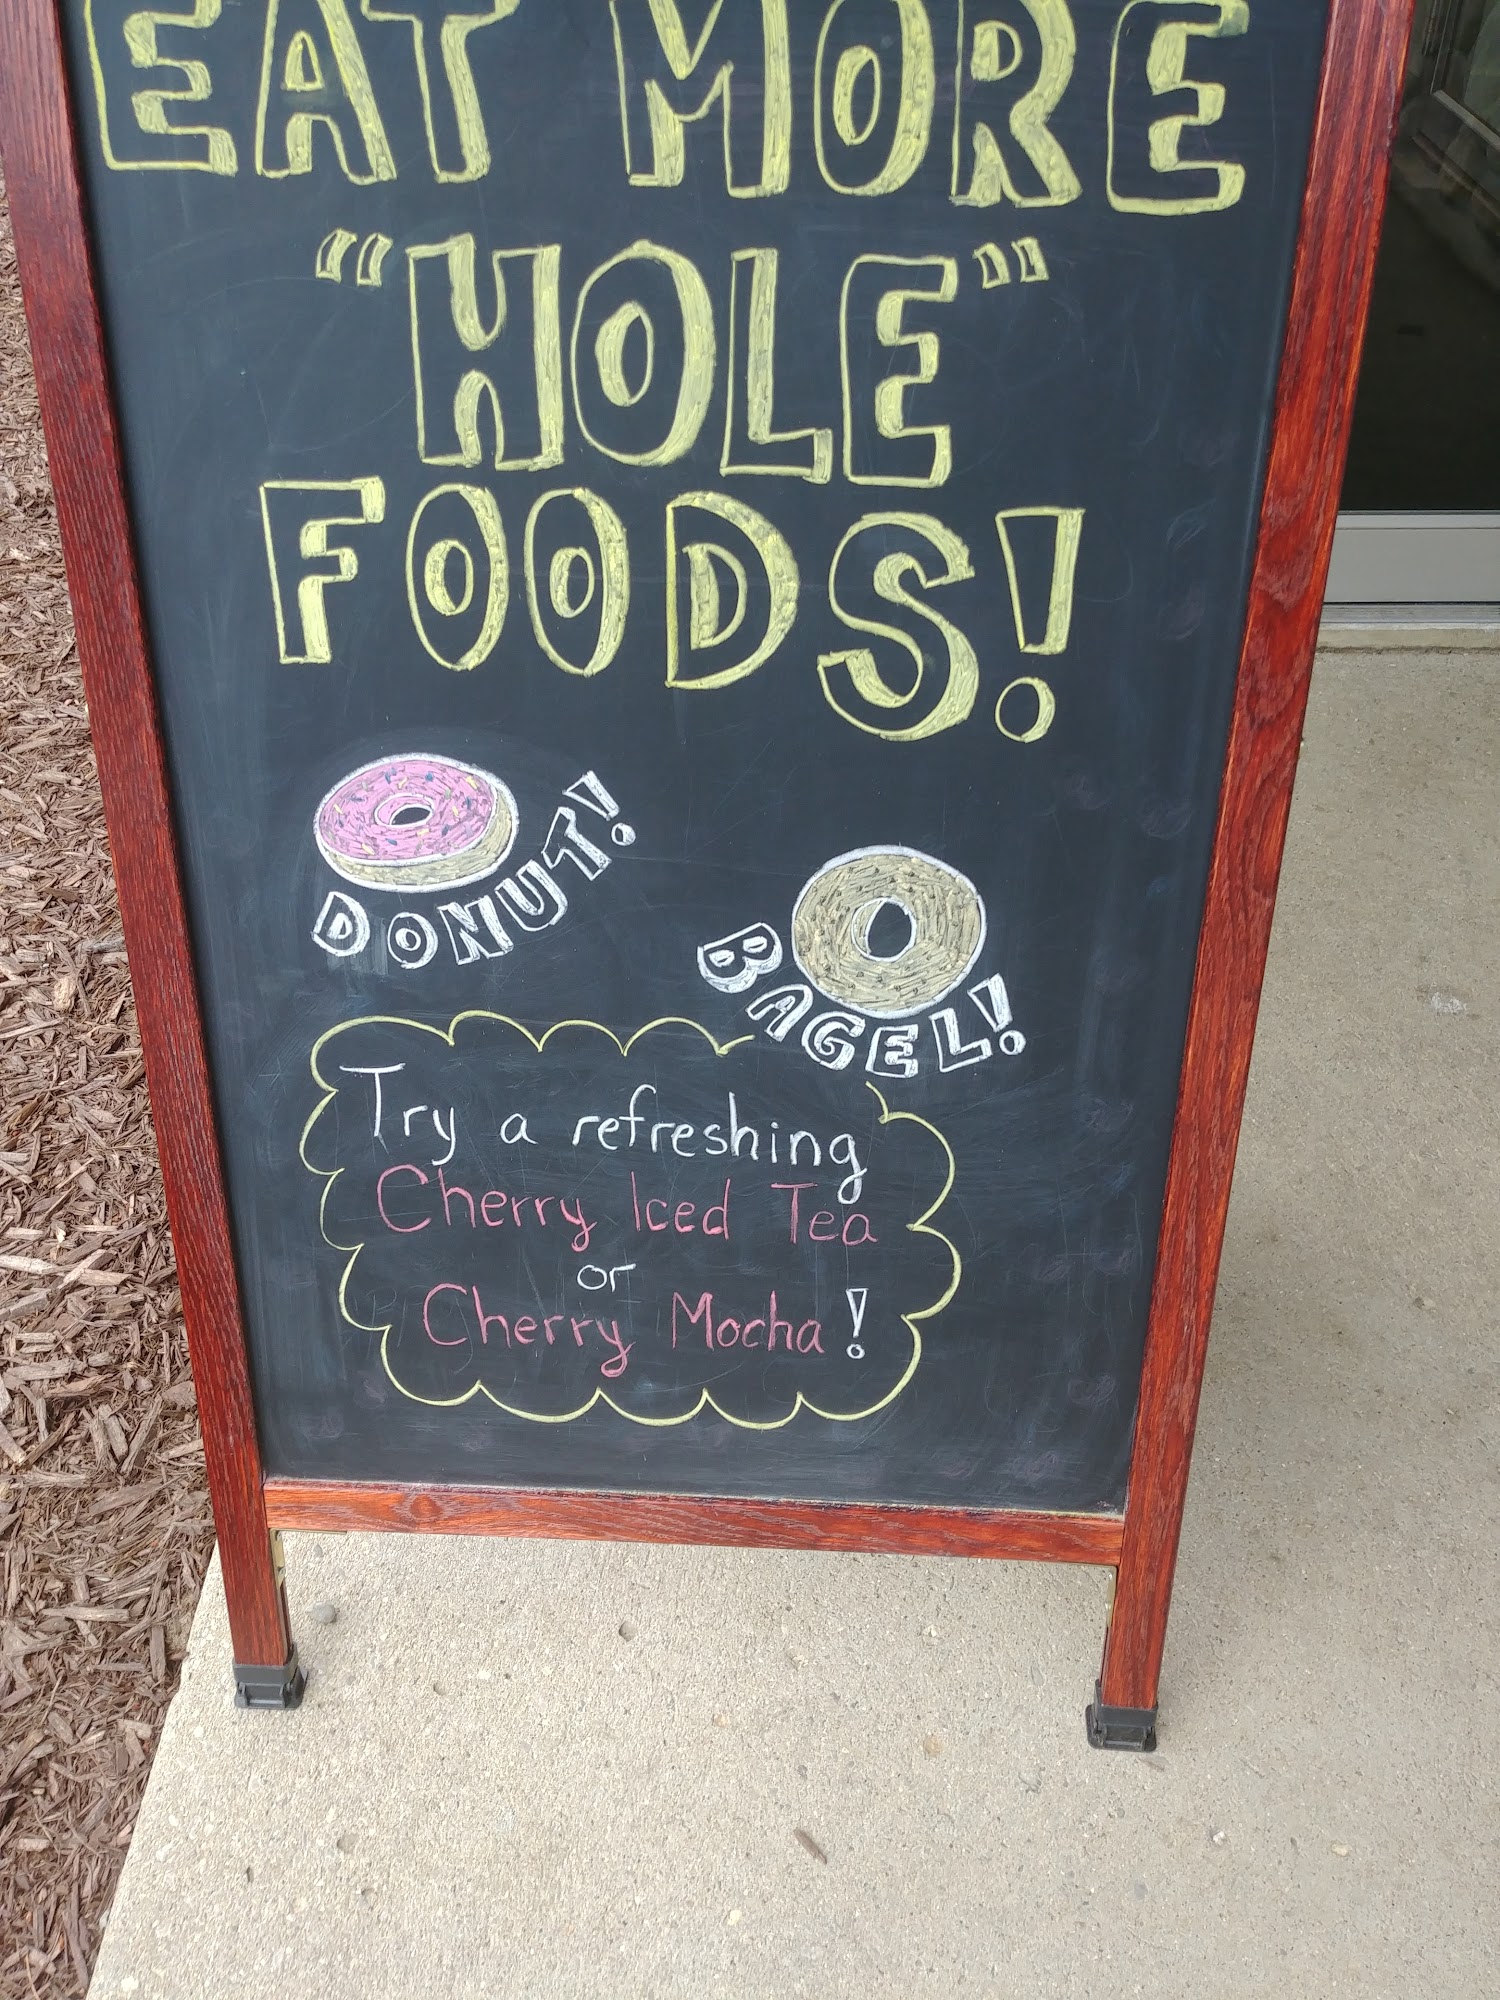 EAT MORE
"HOLE"
FOODS!
DONUT!
BAGEL!
Try a refreshing
Cherry Iced Tea
or
Cherry Mocha!